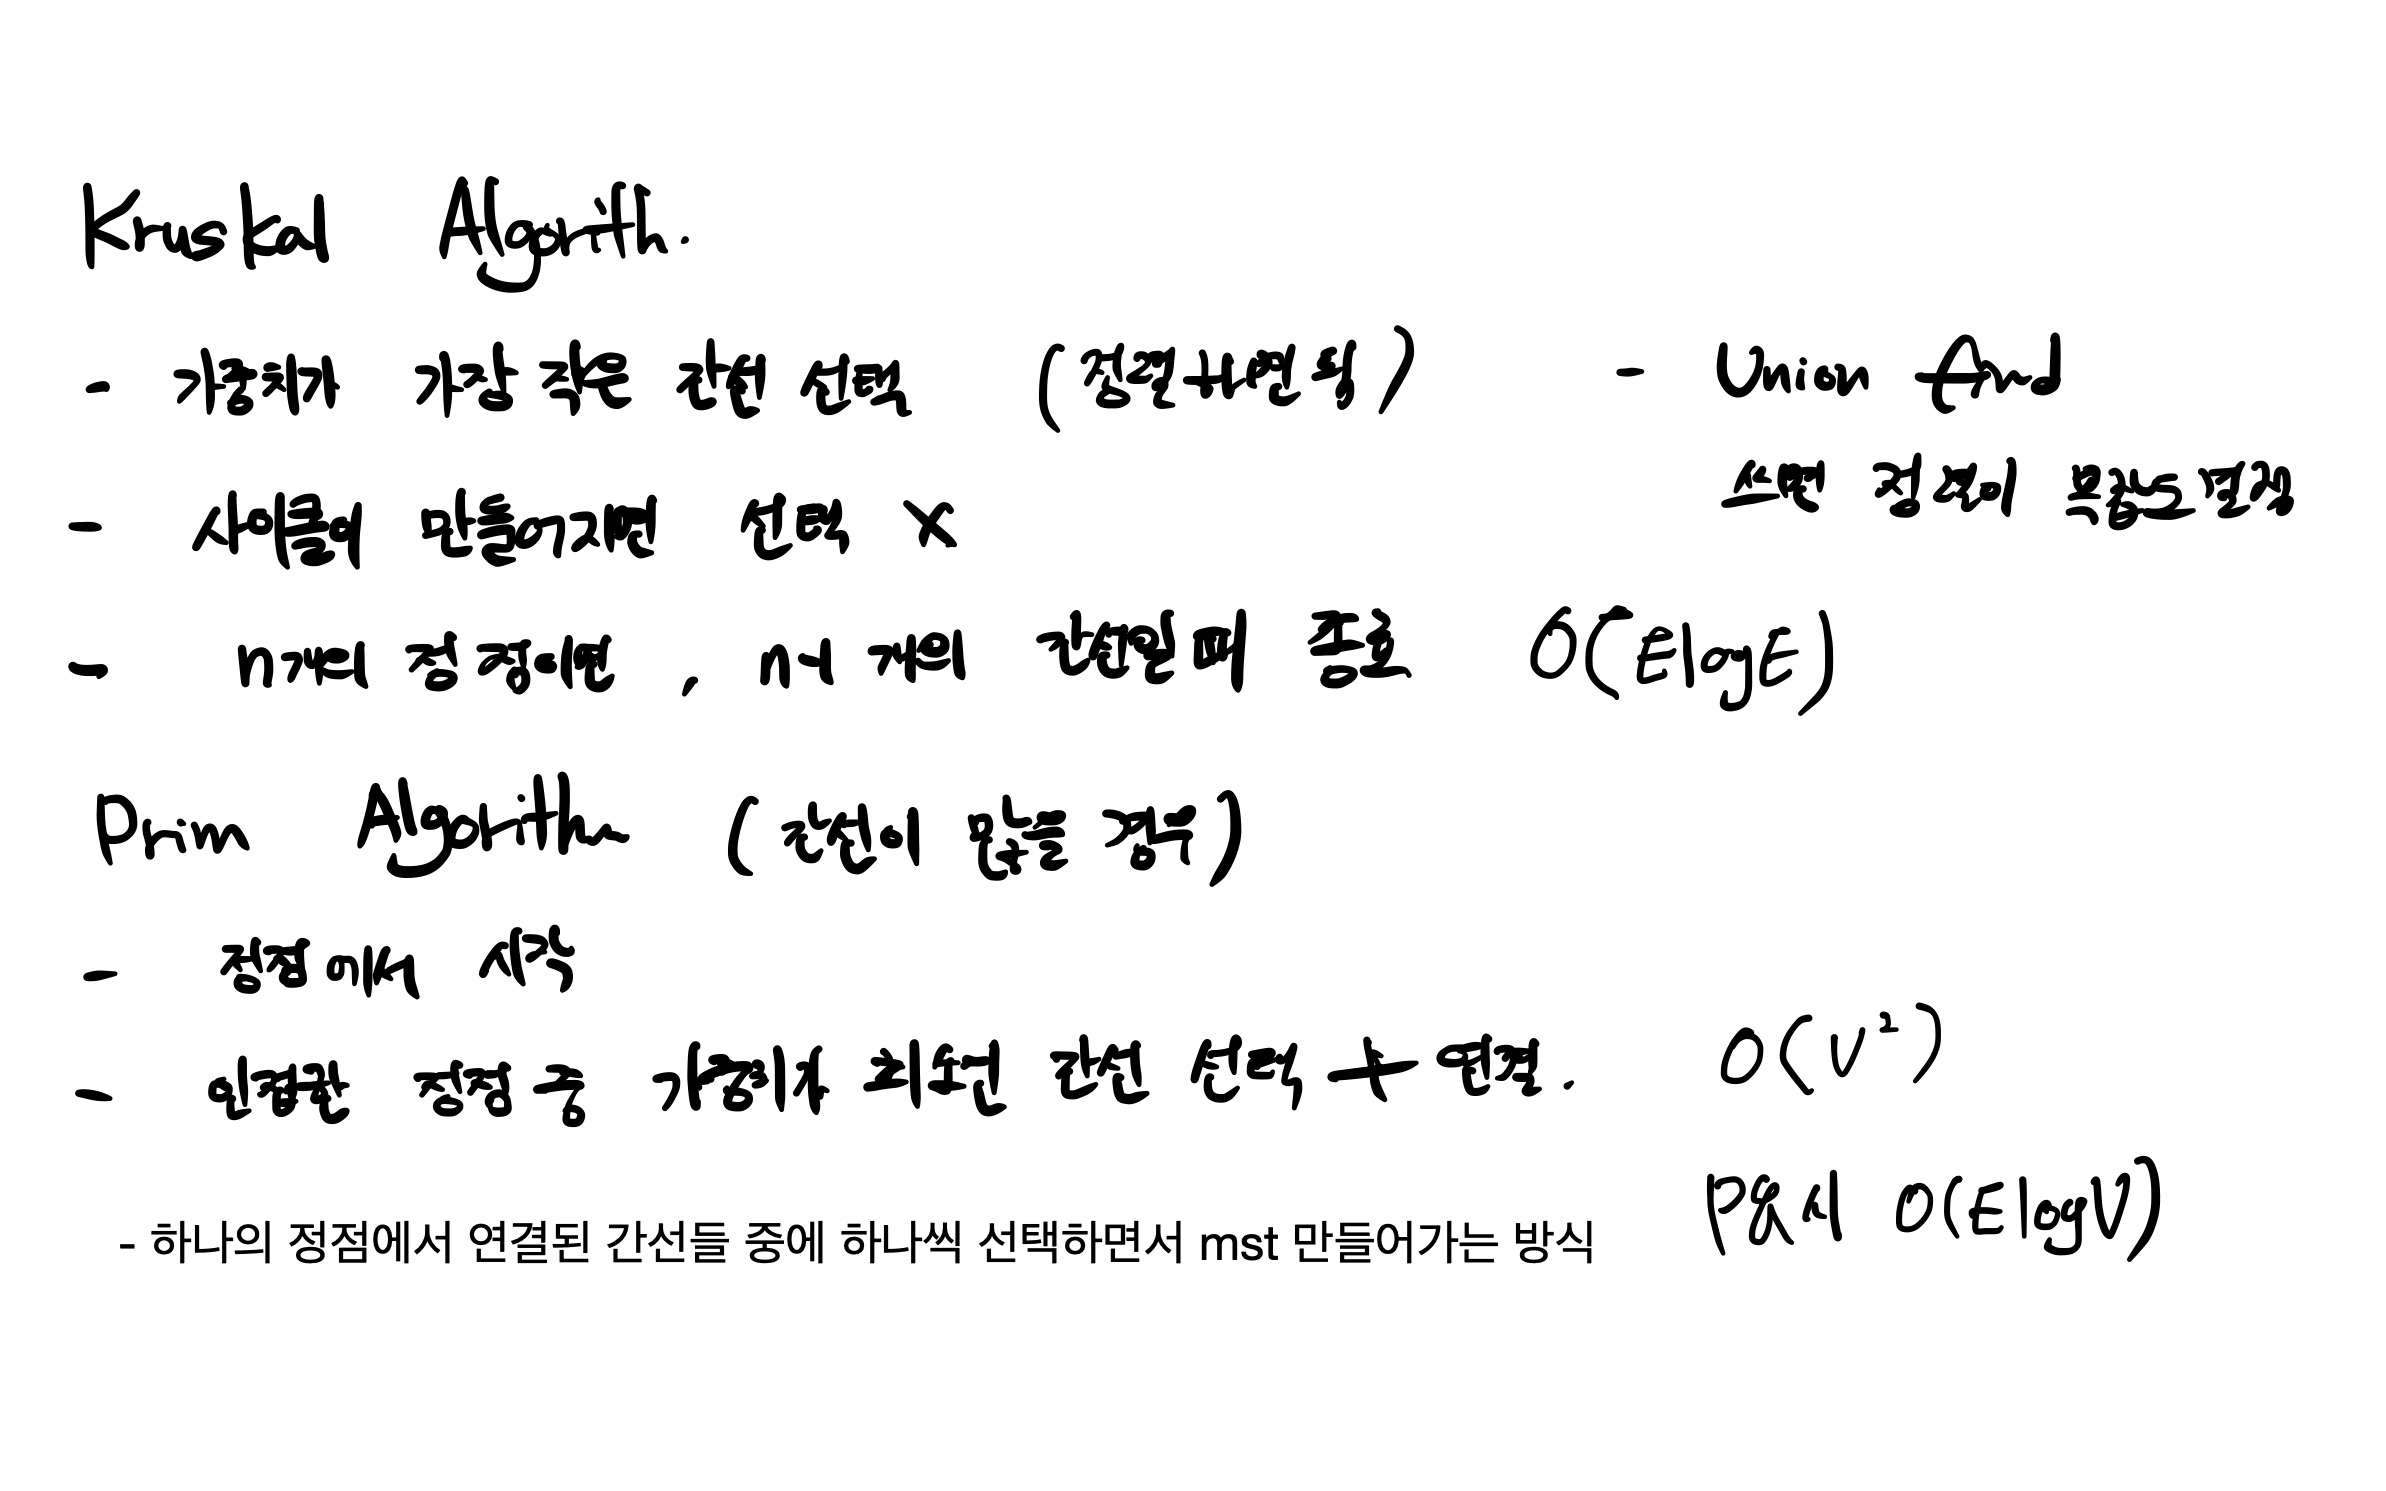 Kruskal Algorith.
- 가중치 가장 작은 간선 선택 (정렬 사용한 후) - Union find
사이클이 만들어지면 선택 X
- n개의 정점중에면, n-1 개의 간선일때 종료 O(ElogE)
Prim Algorith (간선이 많을 경우)
- 정점에서 시작
- 연결된 정점 중 가중치가 최소인 간선 선택, + 연결. O(V²)
- 하나의 정점에서 연결된 간선들 중에 하나씩 선택하면서 mst 만들어가는 방식 O(ElogV)